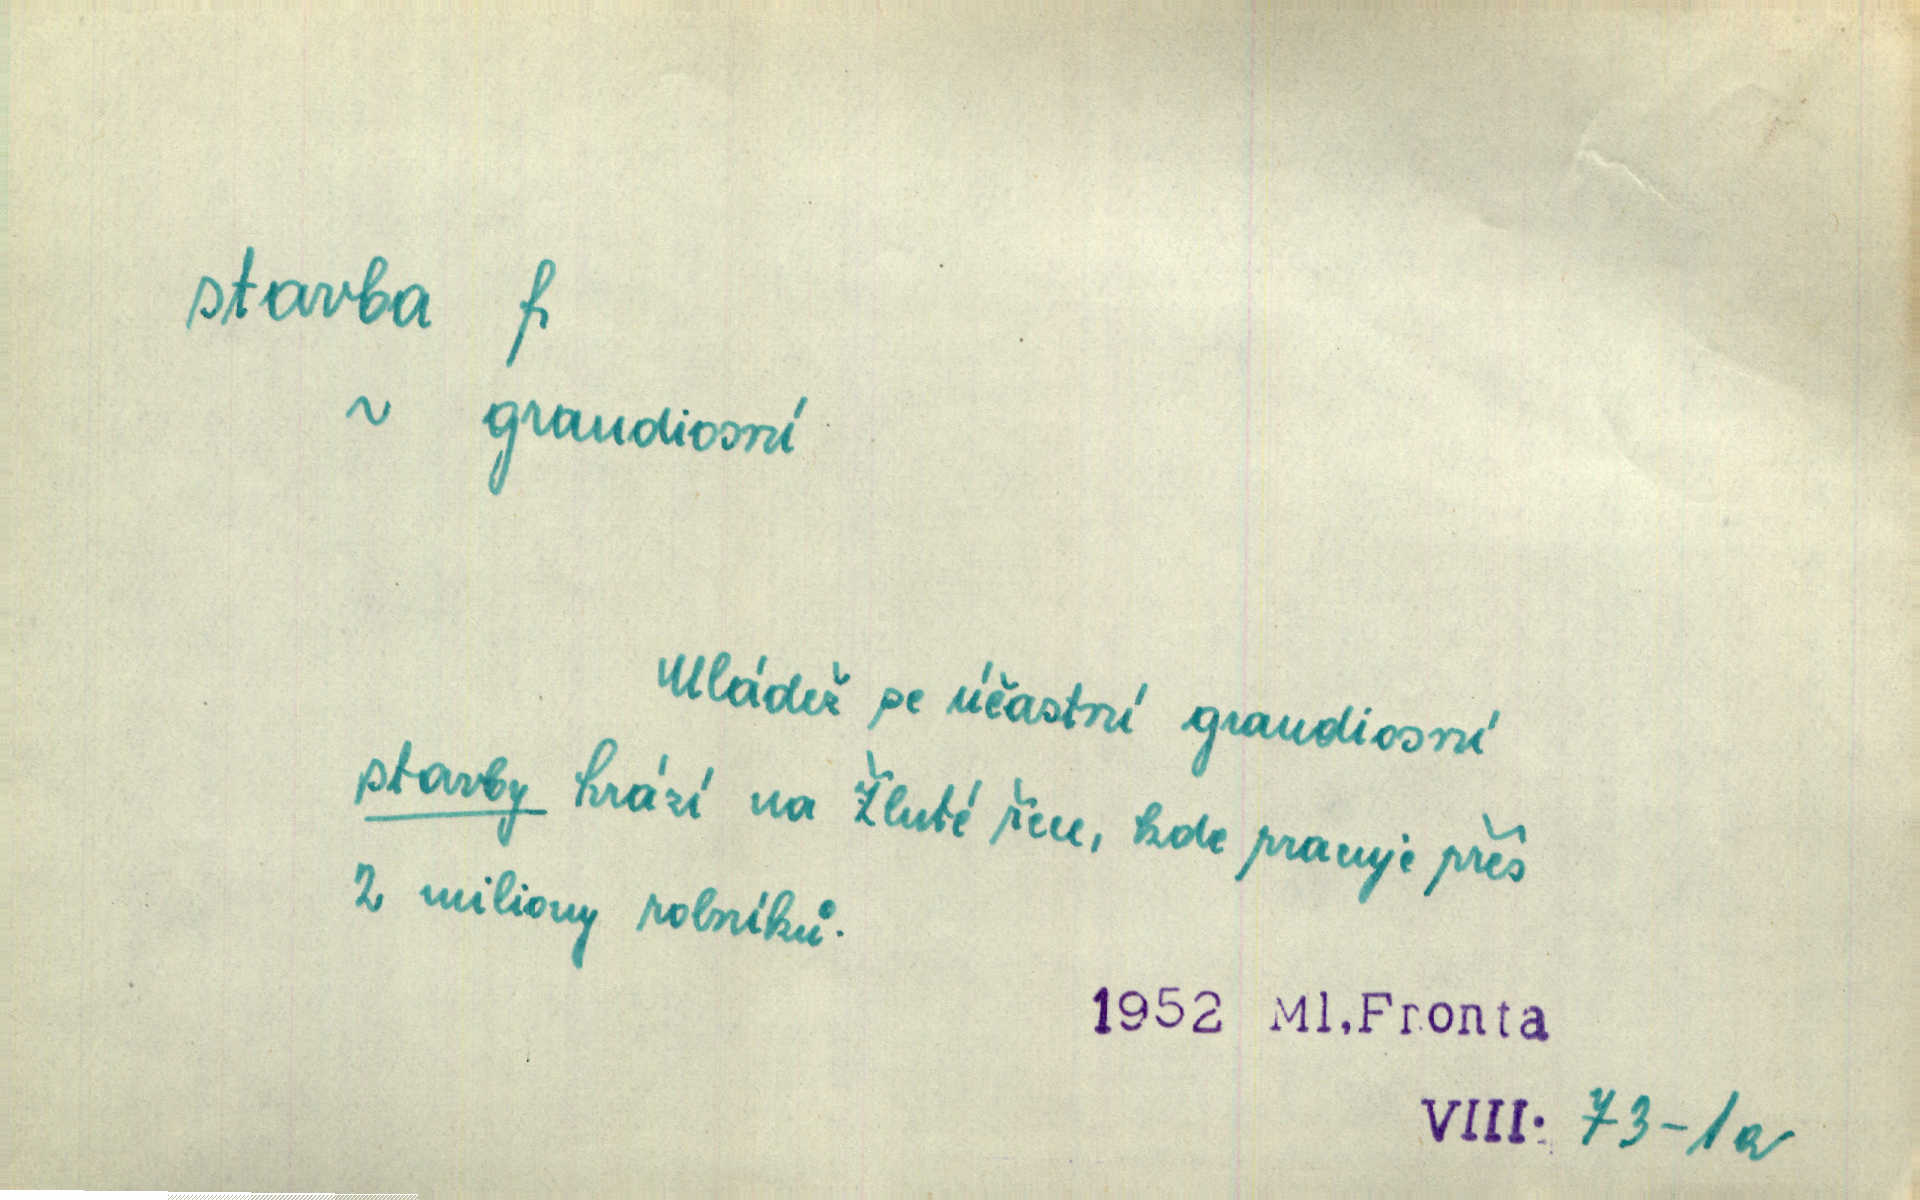 stavba f
~ grandiosní
Mládež se účastní grandiosní
stavby hrází na Žluté řece, kde pracuje přes
2 miliony rolníků.
1952 Ml.Fronta
VIII. 73-1a